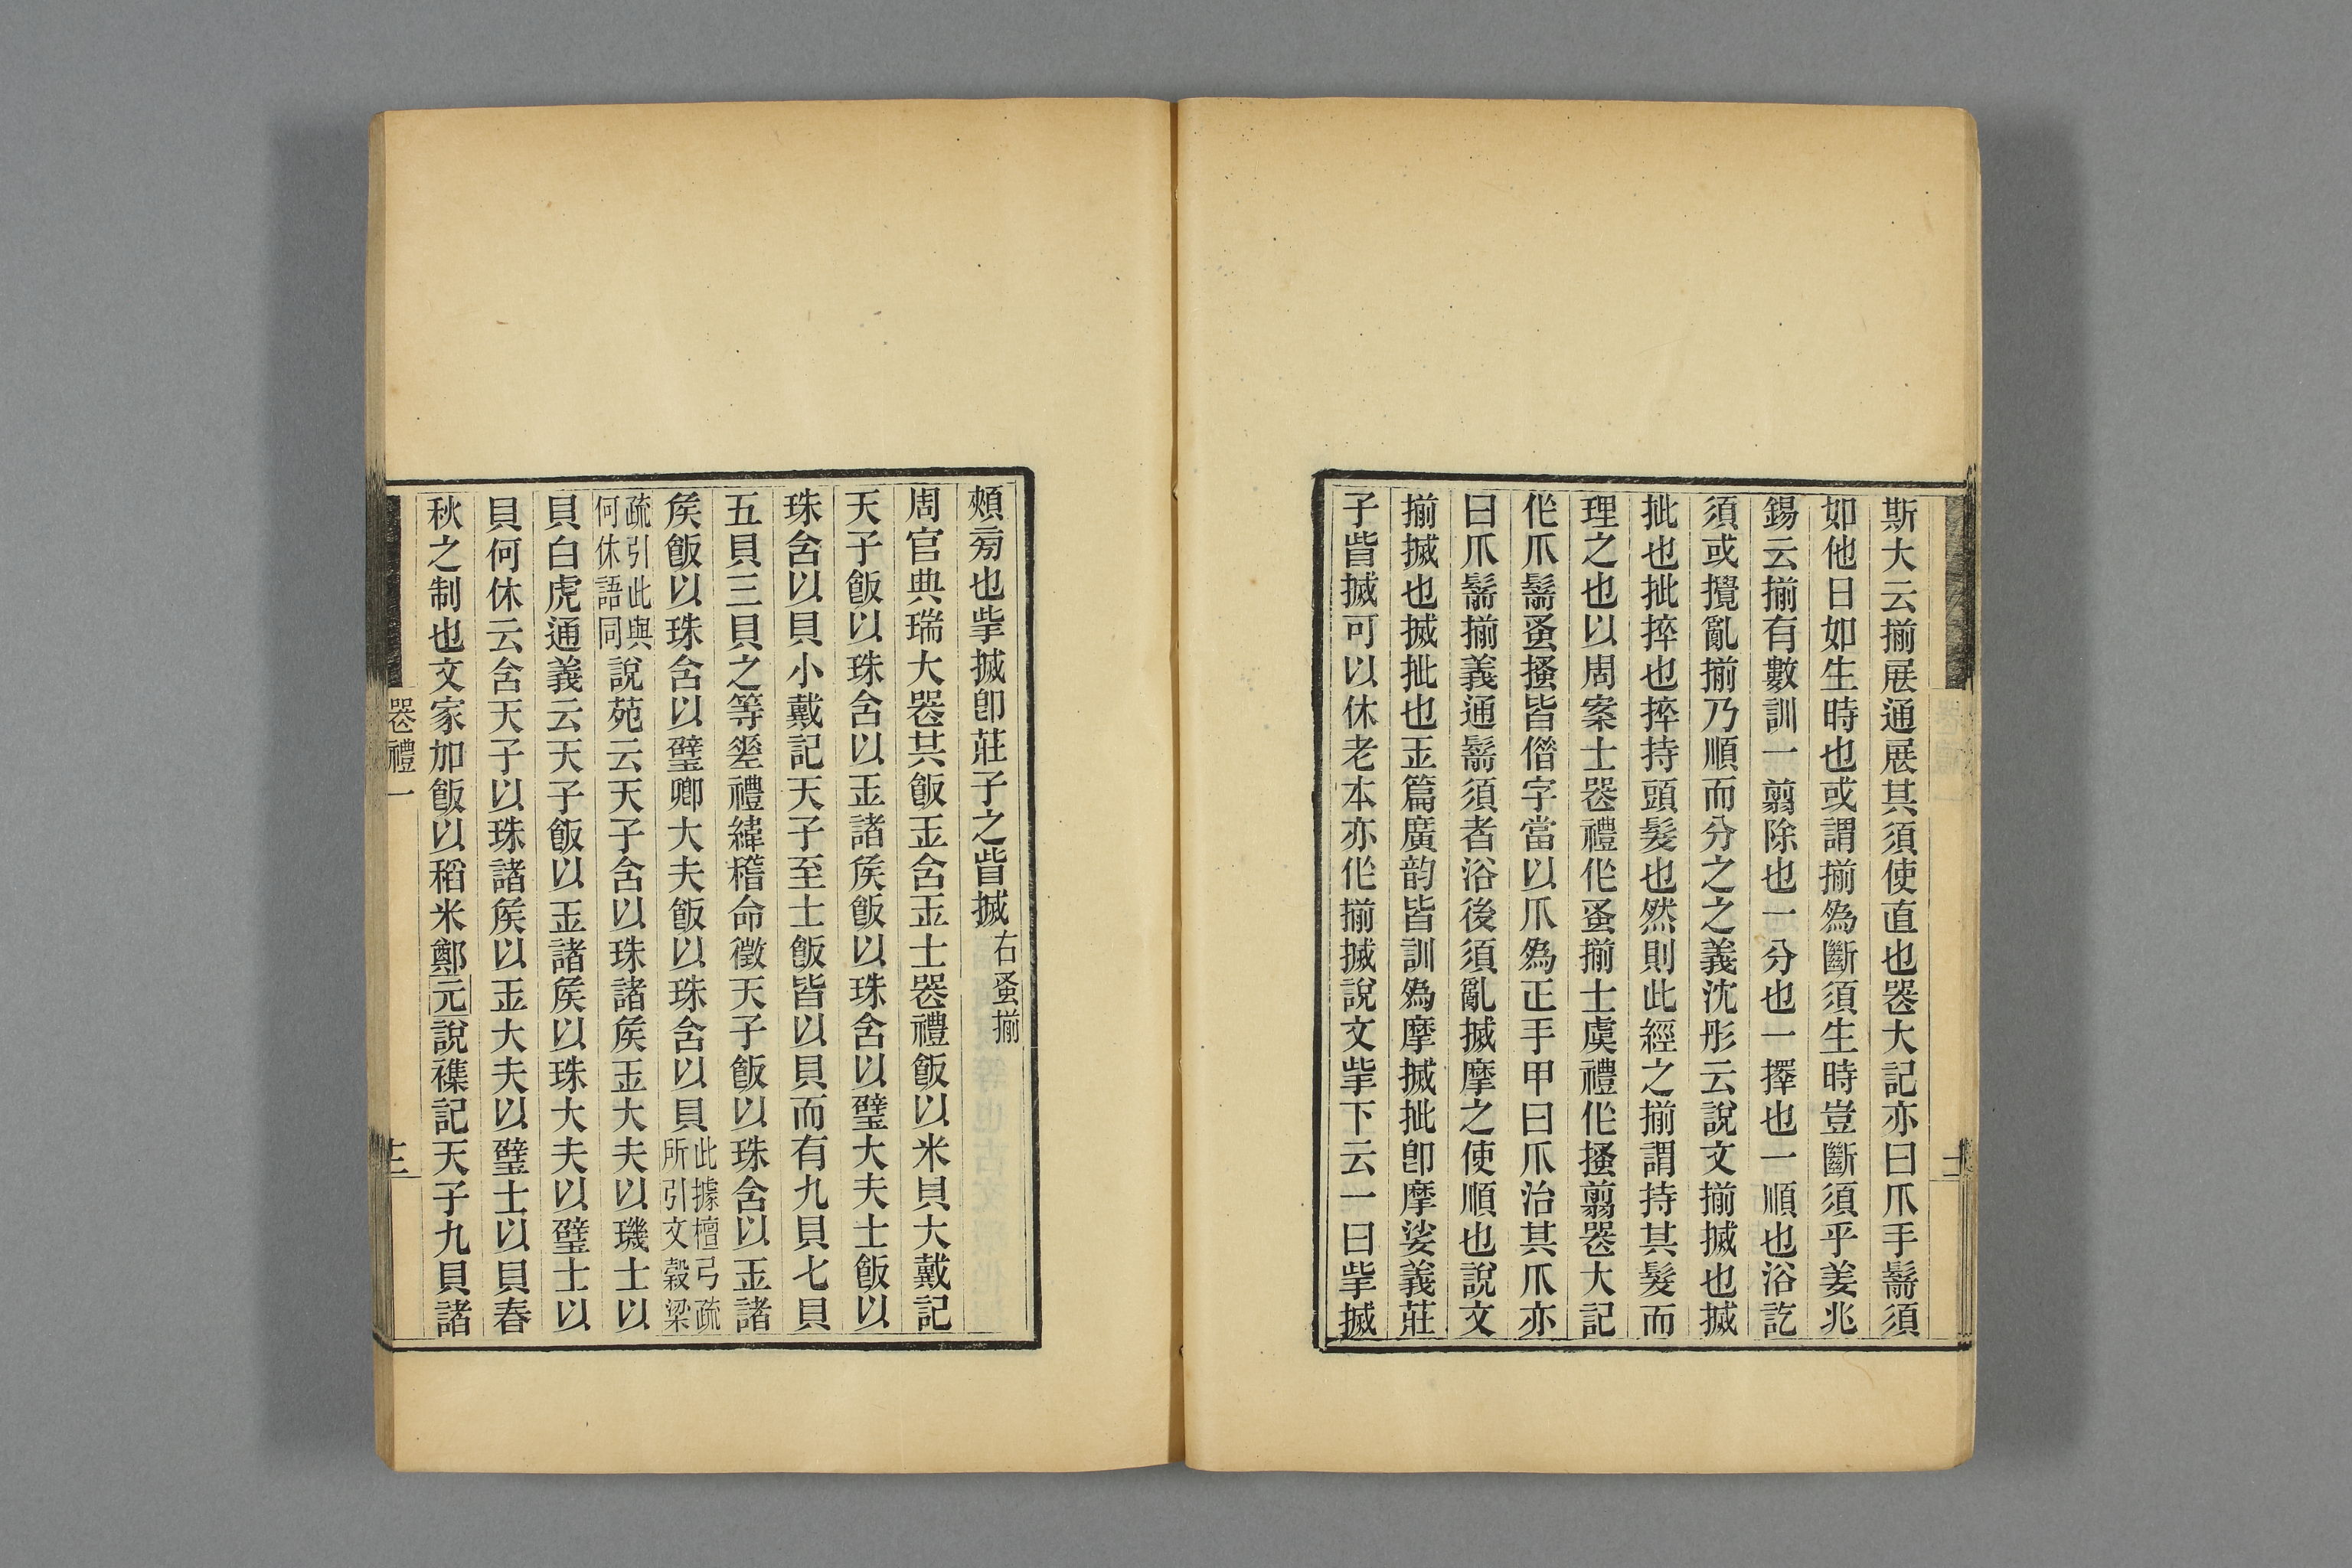 斯大云揃展通展其須使直也器大記亦曰爪手鬋須
如他日如生時也或謂揃爲斷須生時豈斷須乎姜兆
錫云揃有數訓一翦除也一分也一擇也一順也浴訖
須或攪亂揃乃順而分之之義沈彤云說文揃搣也搣
㧗也㧗捽也捽持頭髮也然則此經之揃謂持其髮而
理之也以周案士喪禮作蚤揃士虞禮作搔翦喪大記
作爪鬋蚤搔皆僭字當以爪爲正手甲曰爪治其爪亦
曰爪鬋揃義通鬋須者浴後須亂搣摩之使順也說文
揃搣也搣㧗也玉篇廣韵皆訓爲摩搣㧗卽摩娑義莊
子眥搣可以休老本亦作揃搣說文㧘下云一曰㧘搣
頰旁也㧘搣卽莊子之眥搣右蚤揃
周官典瑞大喪共飯玉含玉士喪禮飯以米貝大戴記
天子飯以珠含以玉諸矦飯以珠含以璧大夫士飯以
珠含以貝小戴記天子至士飯皆以貝而有九貝七貝
五貝三貝之等差禮緯稽命徵天子飯以珠含以玉諸
矦飯以珠含以璧卿大夫飯以珠含以貝此據檀弓疏所引文穀梁
疏引此與何休語同說苑云天子含以珠諸矦玉大夫以璣士以
貝白虎通義云天子飯以玉諸矦以珠大夫以璧士以
貝何休云含天子以珠諸矦以玉大夫以璧士以貝春
秋之制也文家加飯以稻米鄭元說襍記天子九貝諸
喪禮一
十三